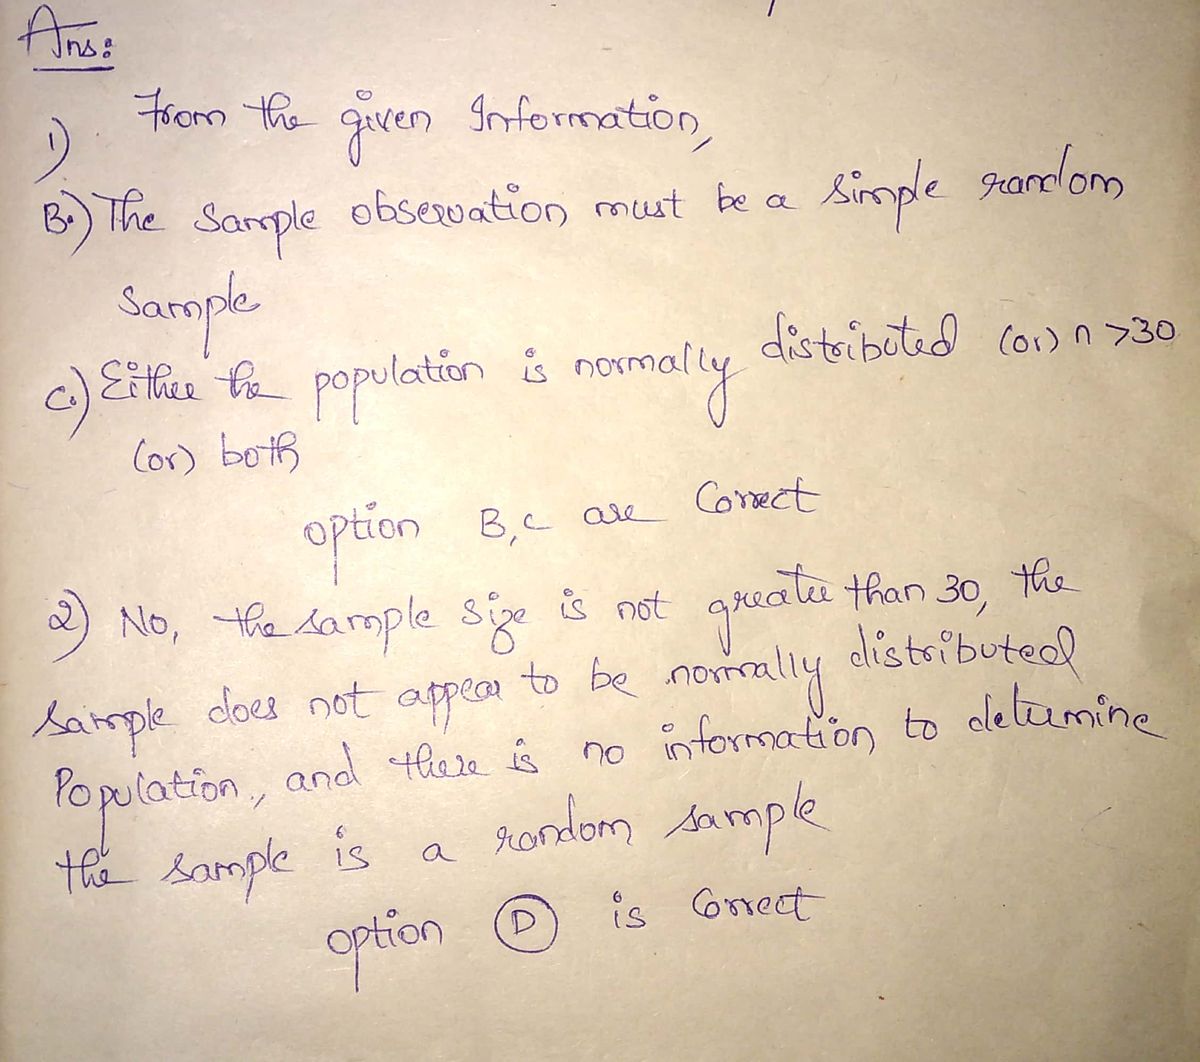 Ans:
1) From the given Information,
B.) The Sample observation must be a simple random
Sample
C.) Either the population is normally distributed (or) n >30
(or) both
option B,C are Correct
2) No, the sample size is not greater than 30, the
sample does not appear to be normally distributed
Population., and there is no information to determine
the sample is a random sample
option D is Correct